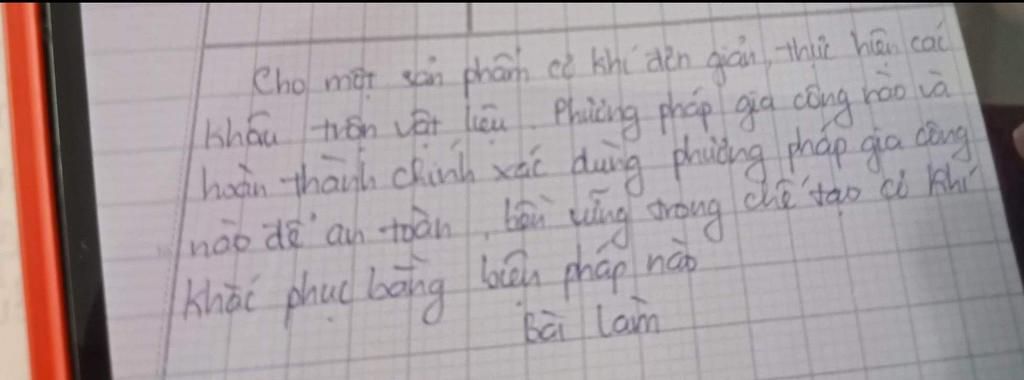 Cho một sản phẩm cơ khí đơn giản, thực hiện các
khâu trên vật liệu. Phương pháp gia công nào và
hoàn thành chính xác dùng phương pháp gia công
nào để an toàn, bền vững trong chế tạo cơ khí
khắc phục bằng biện pháp nào
Bài làm